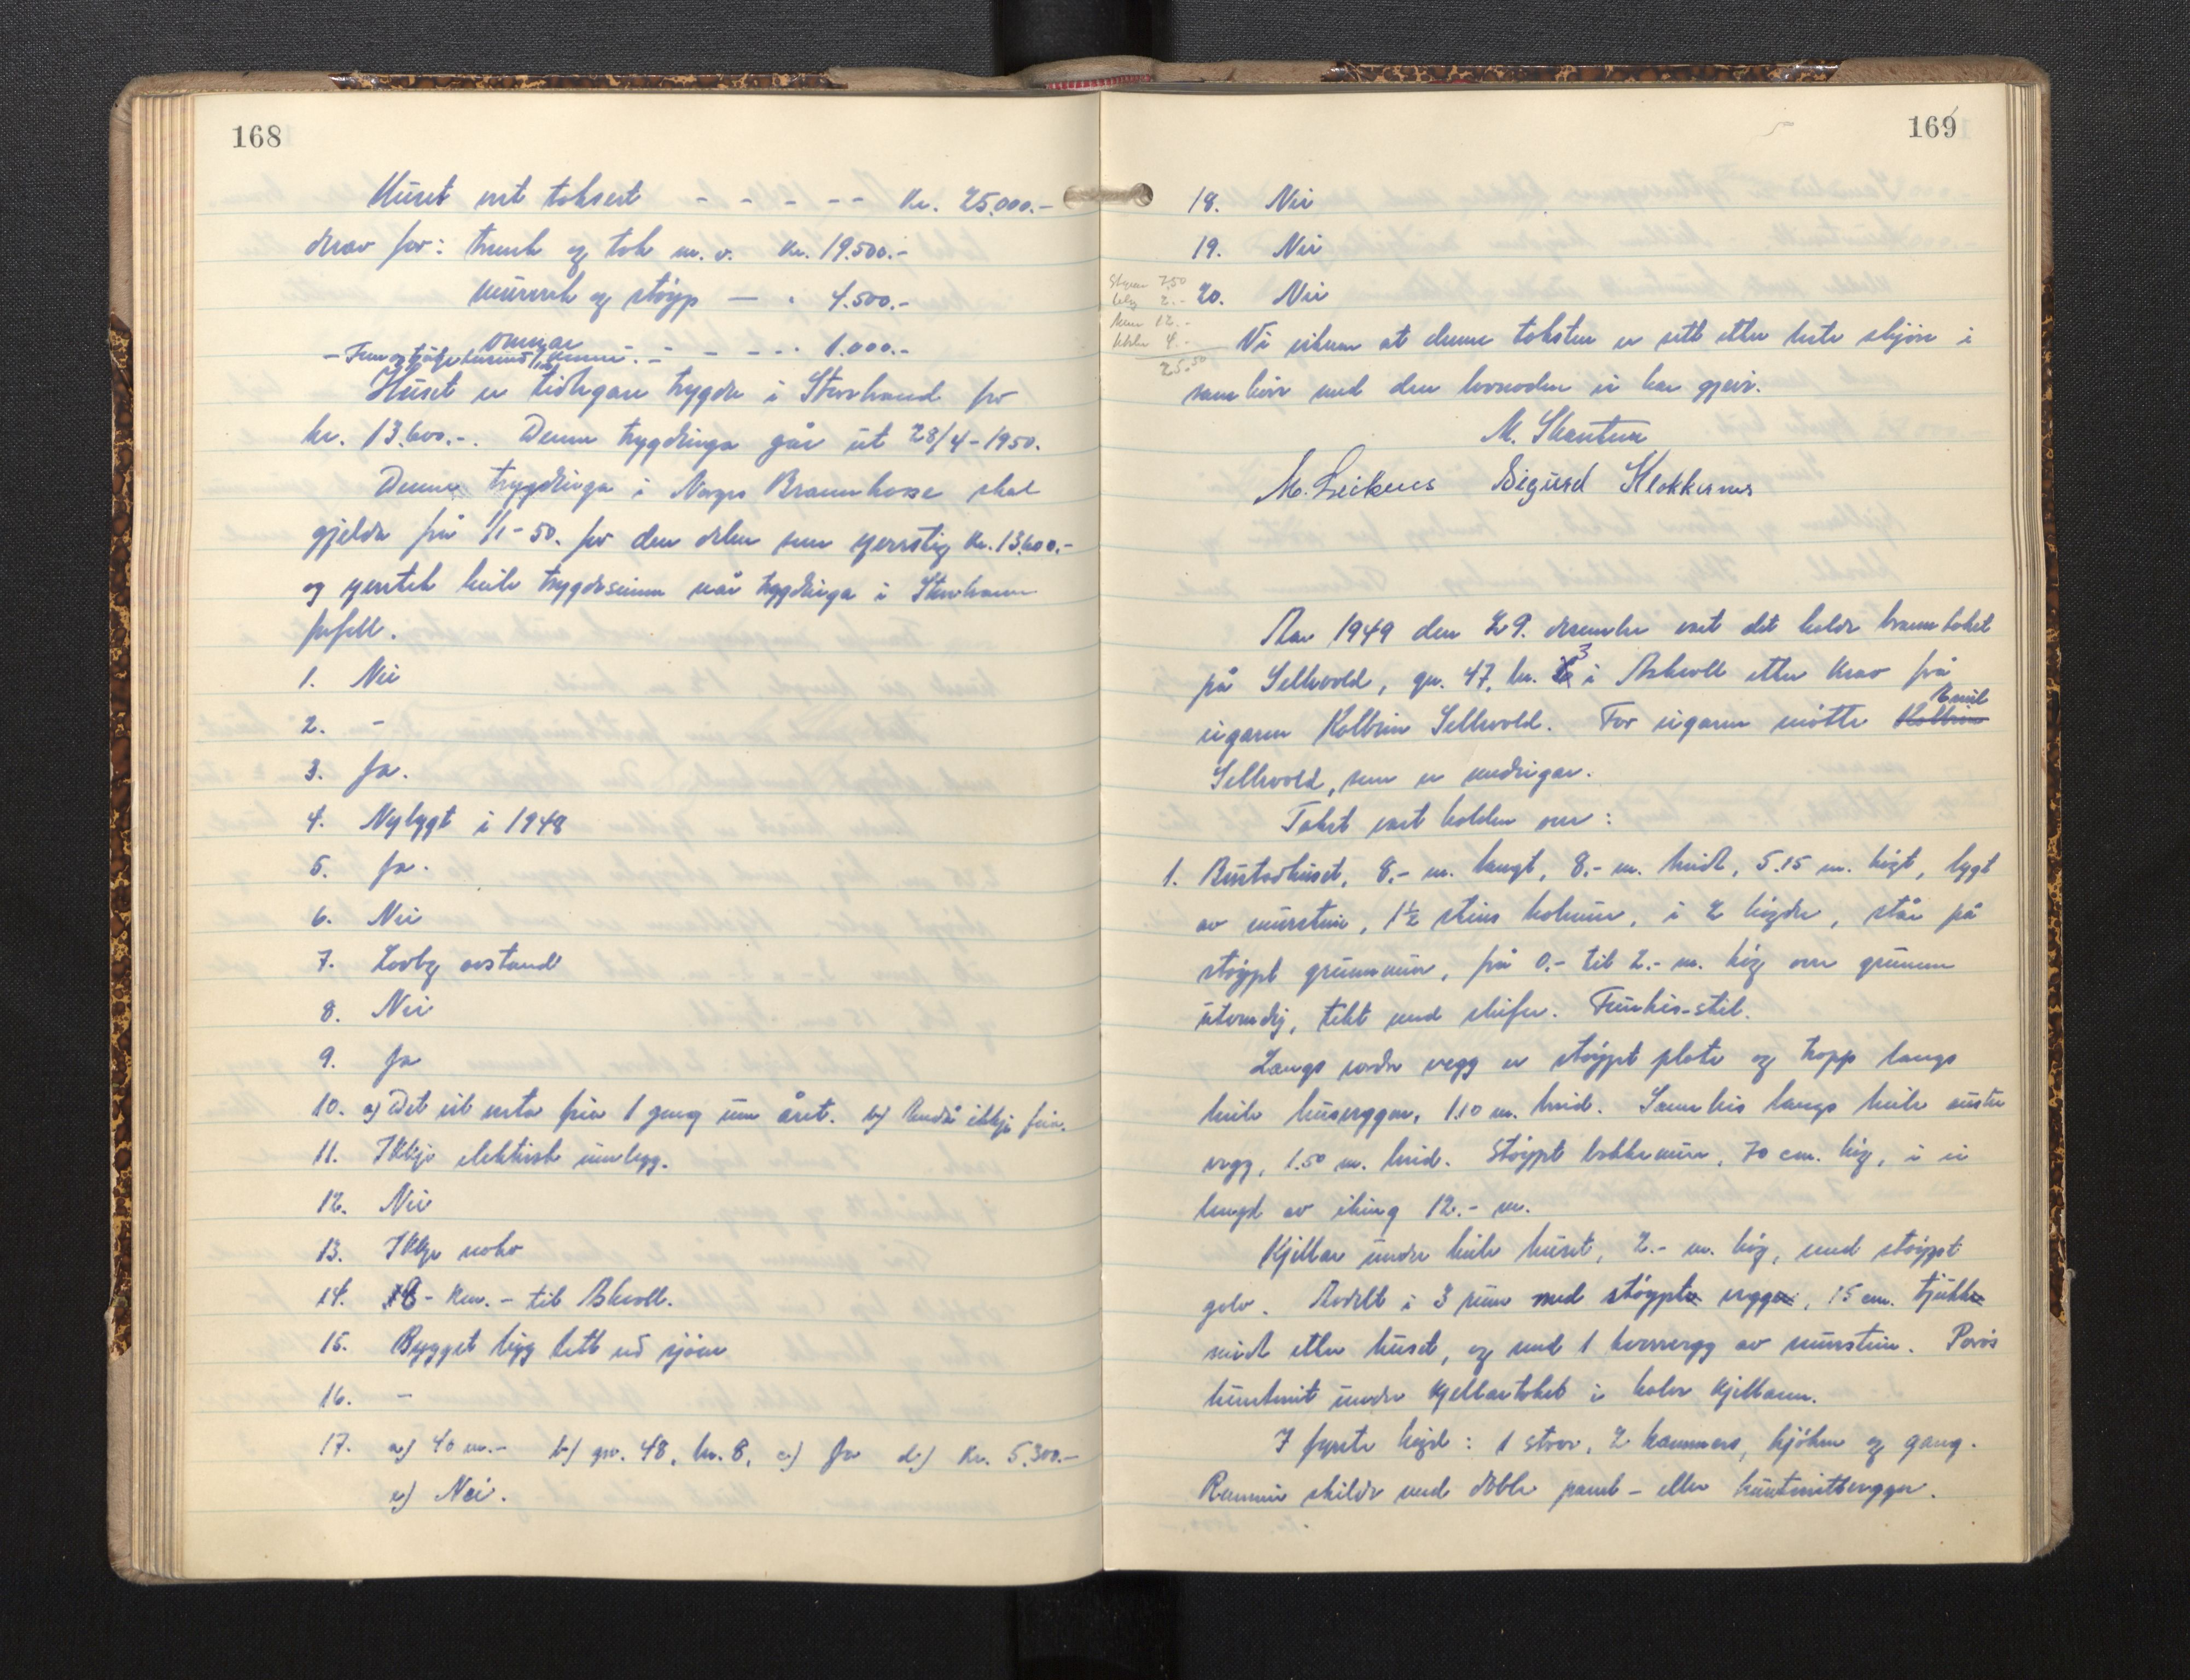 168
Huset vert taksert - - - - - Kr. 25.000.-
derav for: treverk og tak m. v. Kr. 19.500.-
murverk og støyp — " 4.500.-
omnar - - - - 1.000.-
Huset er tidlegare trygda i Storbrand for
kr. 13.600.-. Denne trygdinga går ut 28/4-1950.
Denne trygdinga i Norges Brannkasse skal
gjelda frå 1/1-50. for den delen som yverstig Kr. 13.600.-
og yvertek heile trygdesumm når trygdinga i Storbrann
fofell.
1. Nei
2. -
3. Ja.
4. Nybygt i 1948
5. Ja.
6. Nei
7. Lovleg avstand
8. Nei
9. Ja
10. a) Det vil verta feia 1 gong um året. b) Endå ikkje feia.
11. Ikkje elektrisk innlegg.
12. Nei
13. Ikkje noko
14. 18 - km. - til Askvoll.
15. Bygget ligg tett ved sjøen
16. -
17. a) 40 m.- b) gnr. 48, br. 8, c) Ja d) Kr. 5.300.-
e) Nei.
169
18. Nei
19. Nei
20. Nei
7,50
2.-
12.-
4.-
25.50
Vi vitnar at denne taksten er sett etter beste skjøn i
samhøve med den lovnaden vi har gjeve.
M. Leiknes Sigurd Klokkernes
Aar 1949 den 29. desember vart det halde branntakst
på Sellevold, gn. 47, br. 3 i Askvoll etter krav frå
eigaren Kolbein Sellevold. For eigaren møtte Kolbein Emil
Sellevold, som er medeigar.
Takst vart halden over:
1. Bustadhuset, 8.- m. langt, 8.- m. breidt, 5.15 m. høgt, bygt
av murstein, 1½ steins holmur, i 2 høgder, står på
støypt grunnmur, frå 0.- til 2.- m. høg over grunnen
utvendig, tekt med skifer. Funkis-stil.
Langs nordre vegg er støypt plate og trapp langs
heile husveggen, 1.10 m. breid. Sameleis langs heile austre
vegg, 1.50 m. breid. Støypt bakkemur, 70 cm. høg, i ei
lengd av ikring 12.- m.
Kjellar under heile huset, 2.- m. høg, med støypt
golv. Avdelt i 3 rum med støypte vegger, 15 cm. tjukke
midt etter huset, og med 1 tverrvegg av murstein. Porøs
huntonit under kjellartaket i halve kjellaren.
I fyrste høgd: 1 stove, 2 kammers, kjøken og gang.
Rommi skilde med doble panel- eller huntonittvegger.